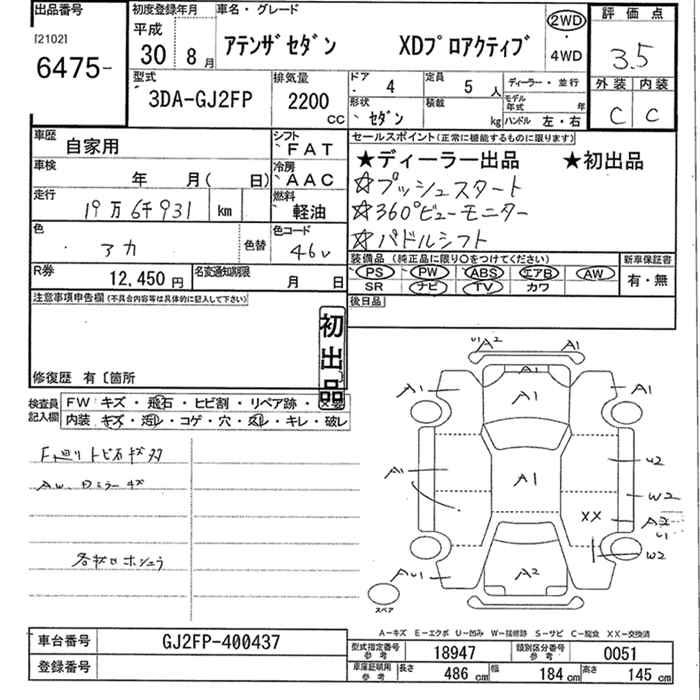 出品番号
[2102]
6475-
初度登録年月
平成
30 8月
車名・グレード
アテンザセダン XDプロアクティブ
2WD
・
4WD
評価点
3.5
外装 内装
C C
型式
3DA-GJ2FP
排気量
2200
CC
ドア
4
定員
5人
ディーラー・並行
形状
セダン
積載
kg
モデル年式 年
ハンドル 左・右
車歴
自家用
シフト
FAT
車検
年 月( 日)
冷房
AAC
走行
19万6千931 km
燃料
軽油
色
アカ
色替
色コード
46V
R券
12,450円
名変通知期限
月 日
セールスポイント(正常に機能するものに限ります)
★ディーラー出品 ★初出品
☆プッシュスタート
☆360°ビューモニター
☆パドルシフト
装備品(純正品に限り○をつけてください)
PS PW ABS エアB AW
SR ナビ TV カワ
新車保証書
有・無
後日品
注意事項申告欄(不具合内容等は具体的に記入して下さい)
初出品
修復歴 有〔箇所
検査員記入欄
FW キズ・飛石・ヒビ割・リペア跡・
内装 キズ・汚レ・コゲ・穴・スレ・キレ・破レ
AW、
A2 A1
A1
A1 A1 A1
A1 A1 U2
W2
XX A2
U1
W2
AU1 A2
スペア
A-キズ E-エクボ U-凹み W-補修跡 S-サビ C-腐食 XX-交換済
車台番号
GJ2FP-400437
登録番号
型式指定番号 参考
18947
類別区分番号 参考
0051
車庫証明用 参考
長さ 486cm 幅 184cm 高さ 145cm